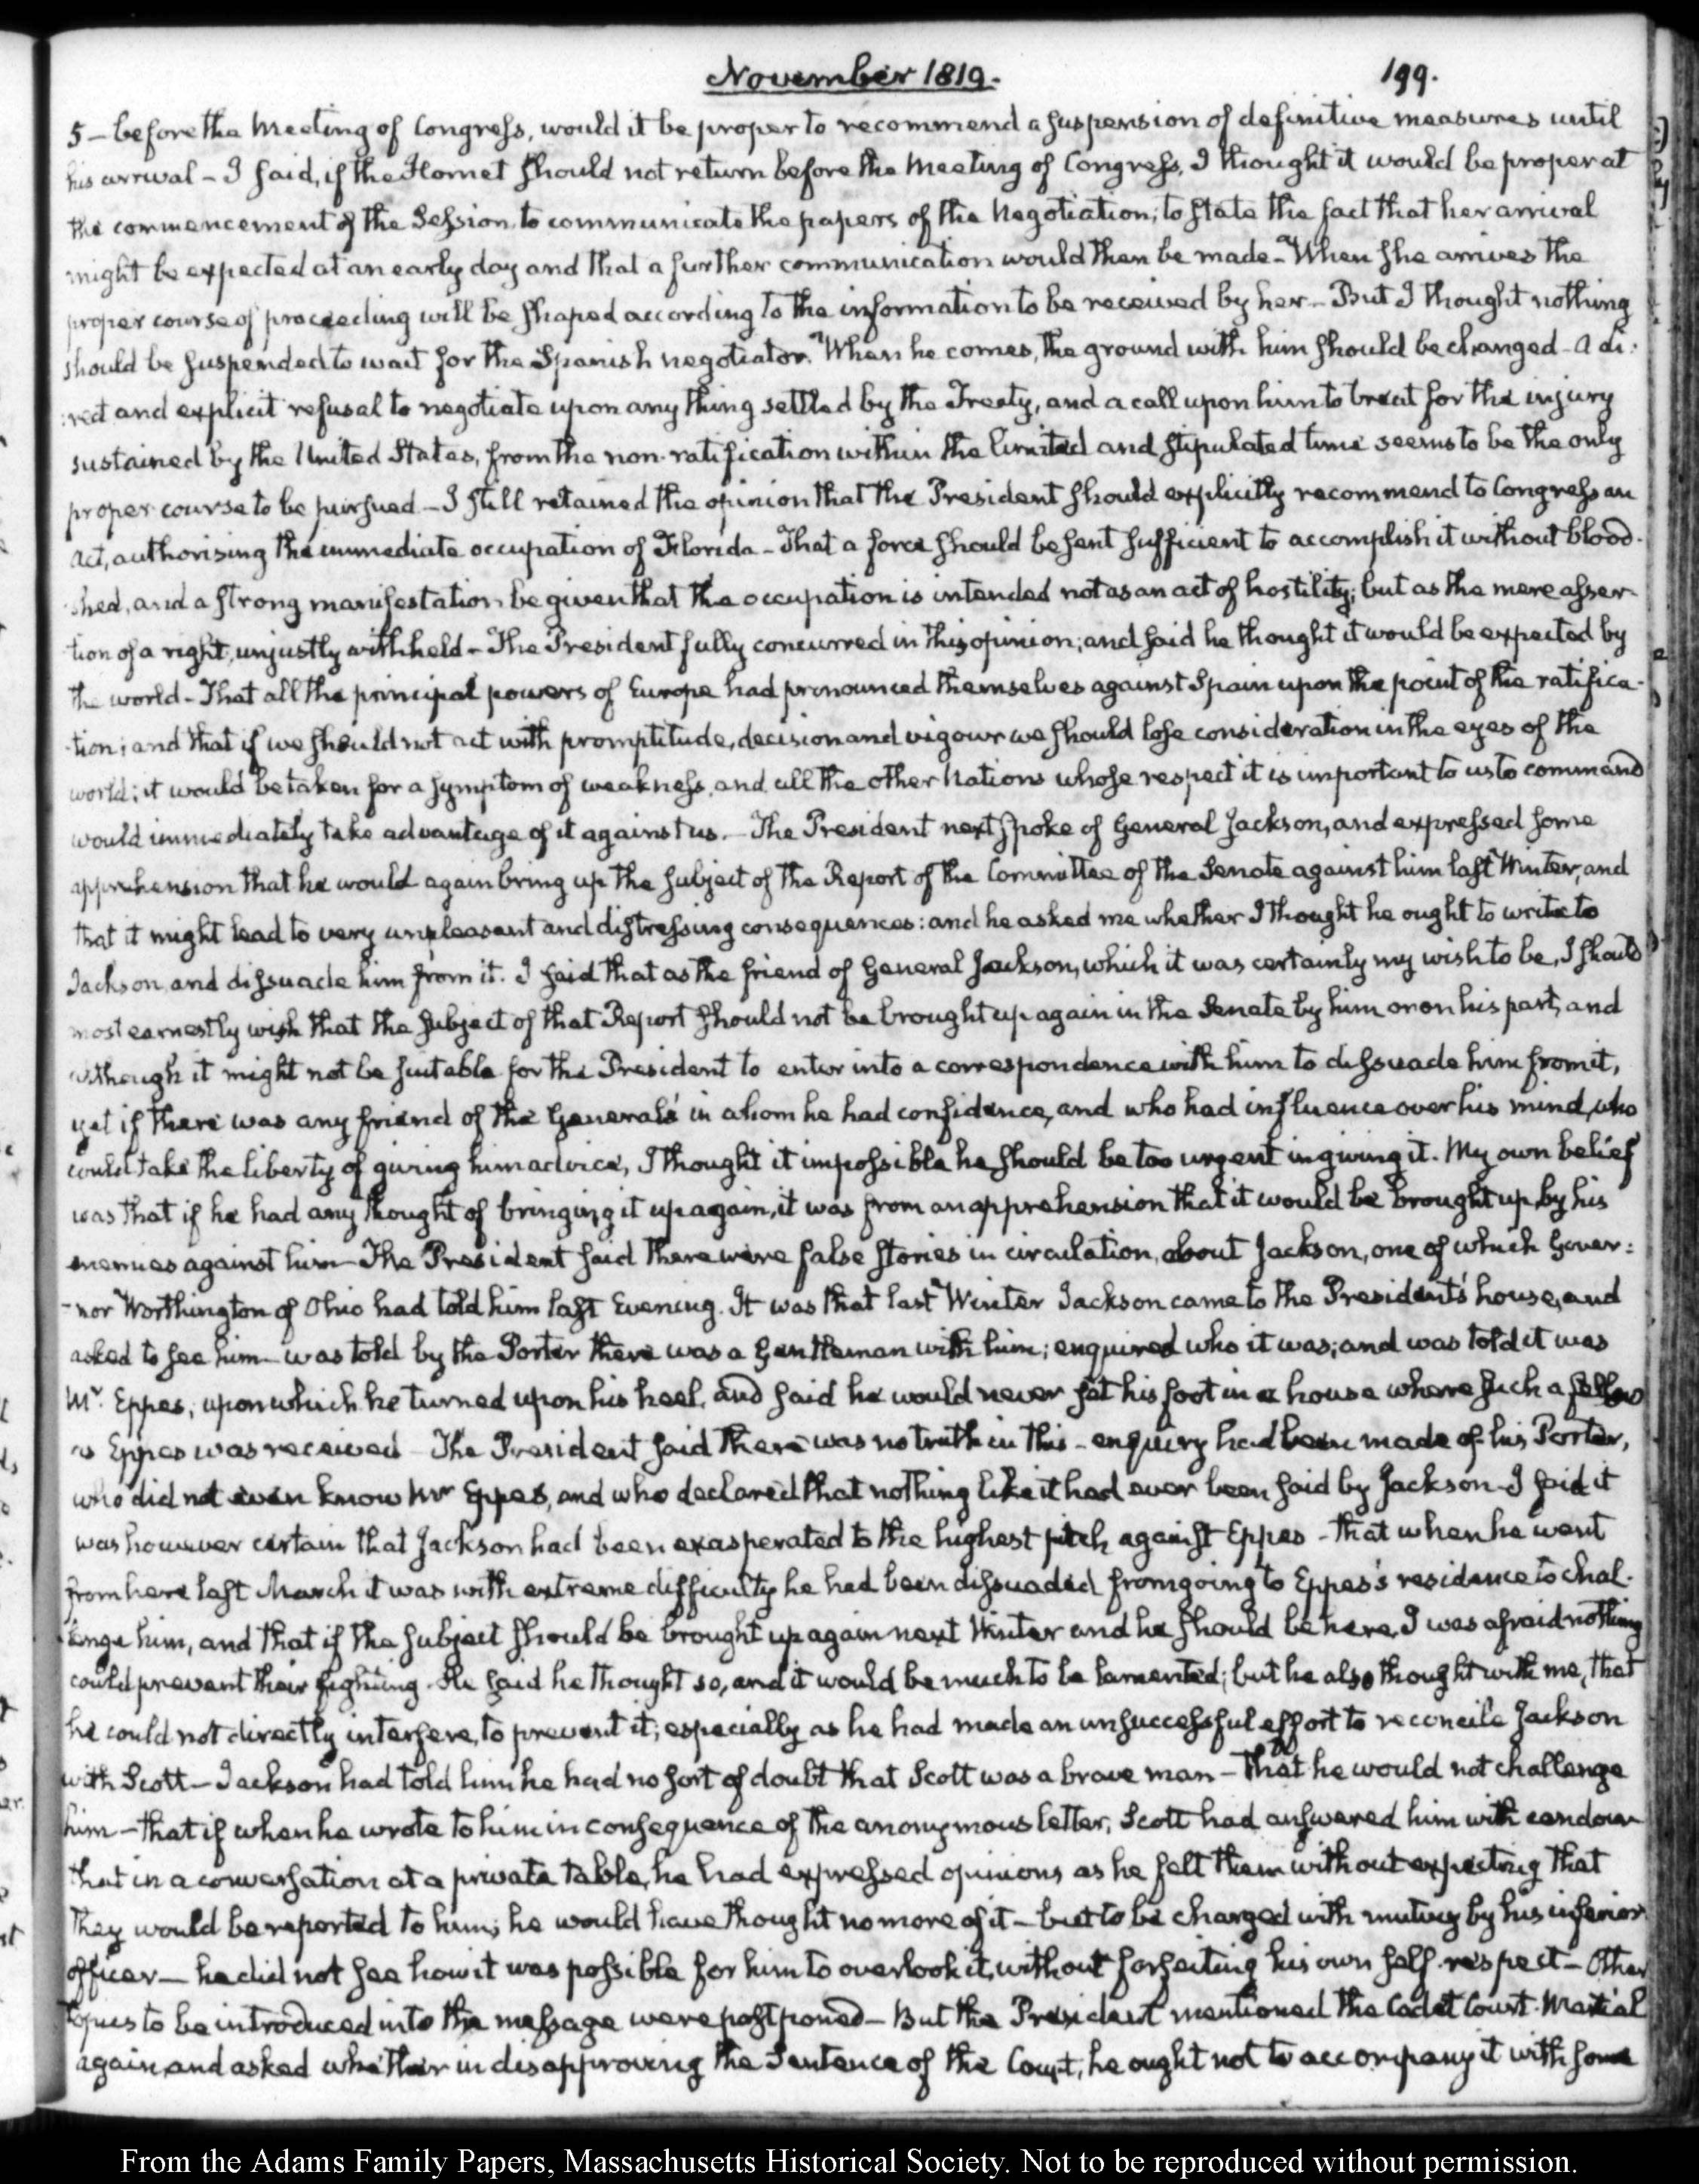 November 1819.
199.
5 – before the Meeting of Congress, would it be proper to recommend a suspension of definitive measures until
his arrival – I said, if the Hornet should not return before the Meeting of Congress, I thought it would be proper at
the commencement of the Session, to communicate the papers of the Negotiation; to state the fact that her arrival
might be expected at an early day and that a further communication would then be made – When she arrives the
proper course of proceeding will be shaped according to the information to be received by her – But I thought nothing
should be suspended to wait for the Spanish negotiator. When he comes, the ground with him should be changed – a di:
:rect and explicit refusal to negotiate upon any thing settled by the Treaty, and a call upon him to treat for the injury
sustained by the United States, from the non-ratification within the limited and stipulated time seems to be the only
proper course to be pursued – I still retained the opinion that the President should explicitly recommend to Congress an
act, authorising the immediate occupation of Florida – That a force should be sent sufficient to accomplish it without blood-
shed, and a strong manifestation be given that the occupation is intended not as an act of hostility; but as the mere asser-
tion of a right, unjustly withheld – The President fully concurred in this opinion; and said he thought it would be expected by
the world – That all the principal powers of Europe had pronounced themselves against Spain upon the point of the ratifica-
-tion; and that if we should not act with promptitude, decision and vigour we should lose consideration in the eyes of the
world; it would be taken for a symptom of weakness, and all the other Nations whose respect it is important to us to command
would immediately take advantage of it against us. – The President next spoke of General Jackson, and expressed some
apprehension that he would again bring up the subject of the Report of the Committee of the Senate against him last Winter, and
that it might lead to very unpleasant and distressing consequences: and he asked me whether I thought he ought to write to
Jackson and dissuade him from it. I said that as the friend of General Jackson, which it was certainly my wish to be, I should
most earnestly wish that the subject of that Report should not be brought up again in the Senate by him or on his part, and
although it might not be suitable for the President to enter into a correspondence with him to dissuade him from it,
yet if there was any friend of the General's in whom he had confidence, and who had influence over his mind, who
could take the liberty of giving him advice, I thought it impossible he should be too urgent in giving it. My own belief
was that if he had any thought of bringing it up again, it was from an apprehension that it would be brought up by his
enemies against him – The President said there were false stories in circulation, about Jackson, one of which Gover:
-nor Worthington of Ohio had told him last Evening. It was that last Winter Jackson came to the President's house, and
asked to see him – was told by the Porter there was a Gentleman with him; enquired who it was; and was told it was
Mr. Eppes; upon which he turned upon his heel, and said he would never set his foot in a house where such a fellow
as Eppes was received – The President said there was no truth in this – enquiry had been made of his Porter,
who did not even know Mr Eppes, and who declared that nothing like it had ever been said by Jackson – I said it
was however certain that Jackson had been exasperated to the highest pitch against Eppes – that when he went
from here last March it was with extreme difficulty he had been dissuaded from going to Eppes's residence to chal-
lenge him, and that if the subject should be brought up again next Winter and he should be here, I was afraid nothing
could prevent their fighting. He said he thought so, and it would be much to be lamented; but he also thought with me, that
he could not directly interfere, to prevent it; especially as he had made an unsuccessful effort to reconcile Jackson
with Scott – Jackson had told him he had no sort of doubt that Scott was a brave man – That he would not challenge
him – that if when he wrote to him in consequence of the anonymous letter, Scott had answered him with candour
that in a conversation at a private table, he had expressed opinions as he felt them without expecting that
they would be reported to him; he would have thought no more of it – but to be charged with mutiny by his inferior
officer – he did not see how it was possible for him to overlook it, without forfeiting his own self-respect – Other
topics to be introduced into the message were postponed – But the President mentioned the Cadet Court-Martial
again, and asked whether in disapproving the Sentence of the Court, he ought not to accompany it with some
From the Adams Family Papers, Massachusetts Historical Society. Not to be reproduced without permission.